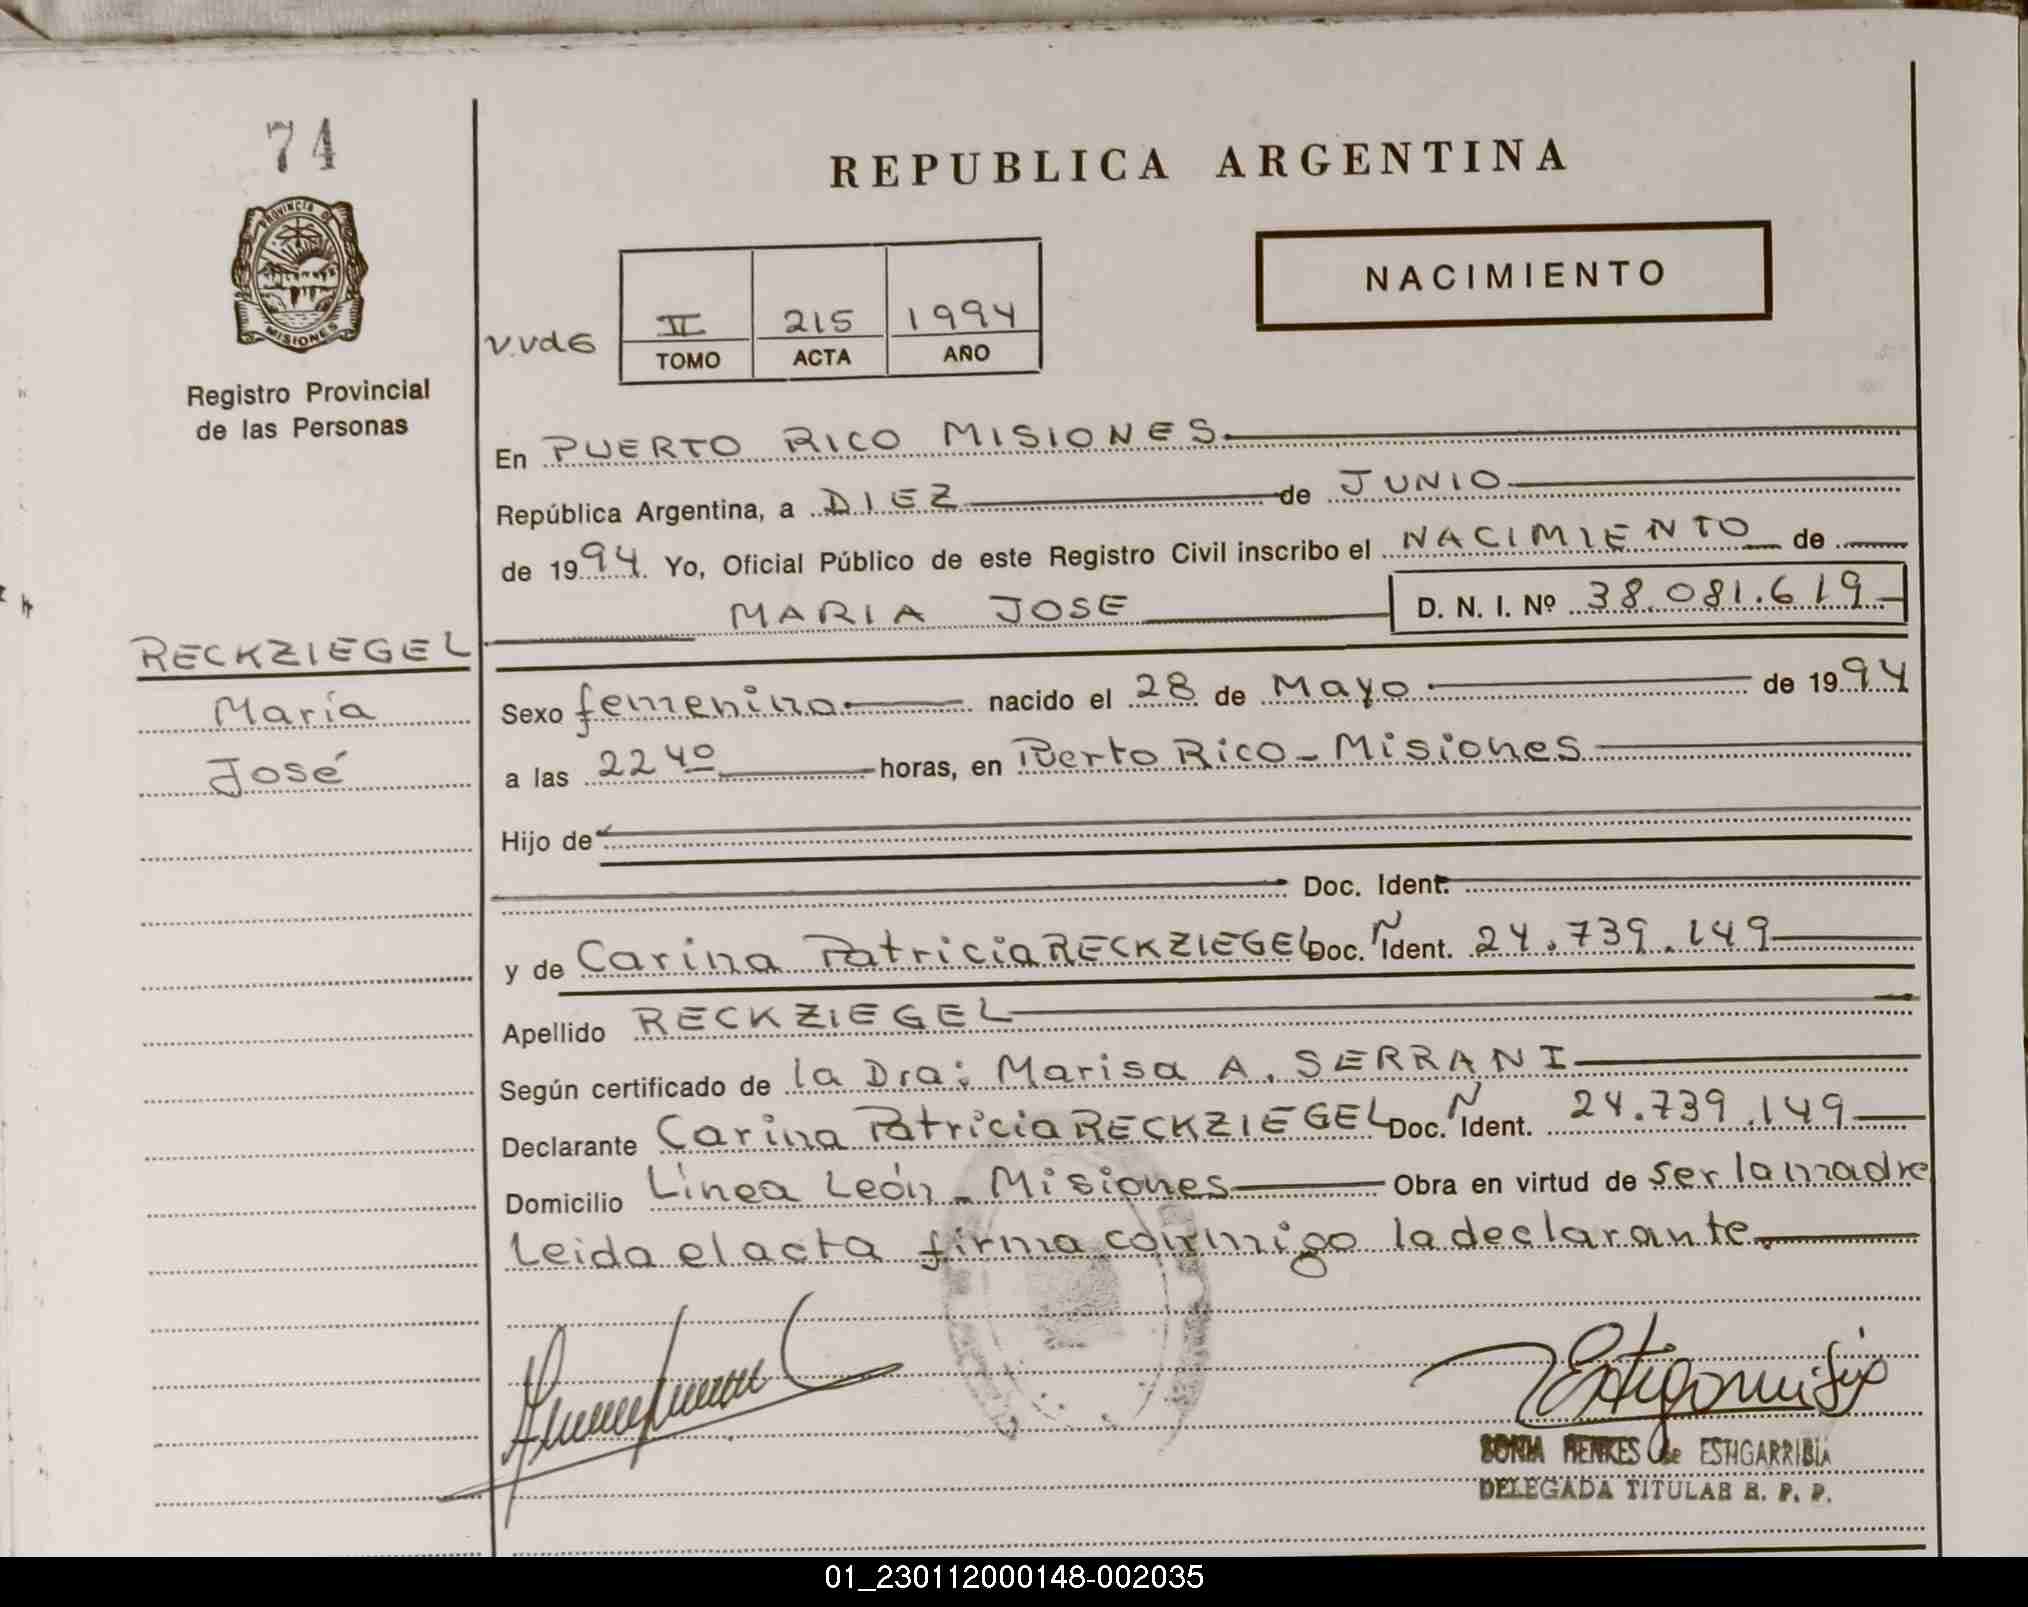 74
REPUBLICA ARGENTINA
PROVINCIA DE
MISIONES
NACIMIENTO
V.VdG
II 215 1994
TOMO ACTA AÑO
Registro Provincial
de las Personas
En PUERTO RICO MISIONES
República Argentina, a DIEZ de JUNIO
de 1994. Yo, Oficial Público de este Registro Civil inscribo el NACIMIENTO de
MARIA JOSE D. N. I. Nº 38.081.619
RECKZIEGEL
María
José
Sexo femenino nacido el 28 de Mayo de 1994
a las 22 40 horas, en Puerto Rico - Misiones
Hijo de
Doc. Ident.
y de Carina Patricia RECKZIEGEL Doc. N Ident. 24.739.149
Apellido RECKZIEGEL
Según certificado de la Dra: Marisa A. SERRANI
Declarante Carina Patricia RECKZIEGEL Doc. N Ident. 24.739.149
Domicilio Línea León - Misiones Obra en virtud de ser la madre
Leida el acta firma conmigo la declarante.
SONIA HENKES de ESTIGARRIBIA
DELEGADA TITULAR R. P. P.
01_230112000148-002035